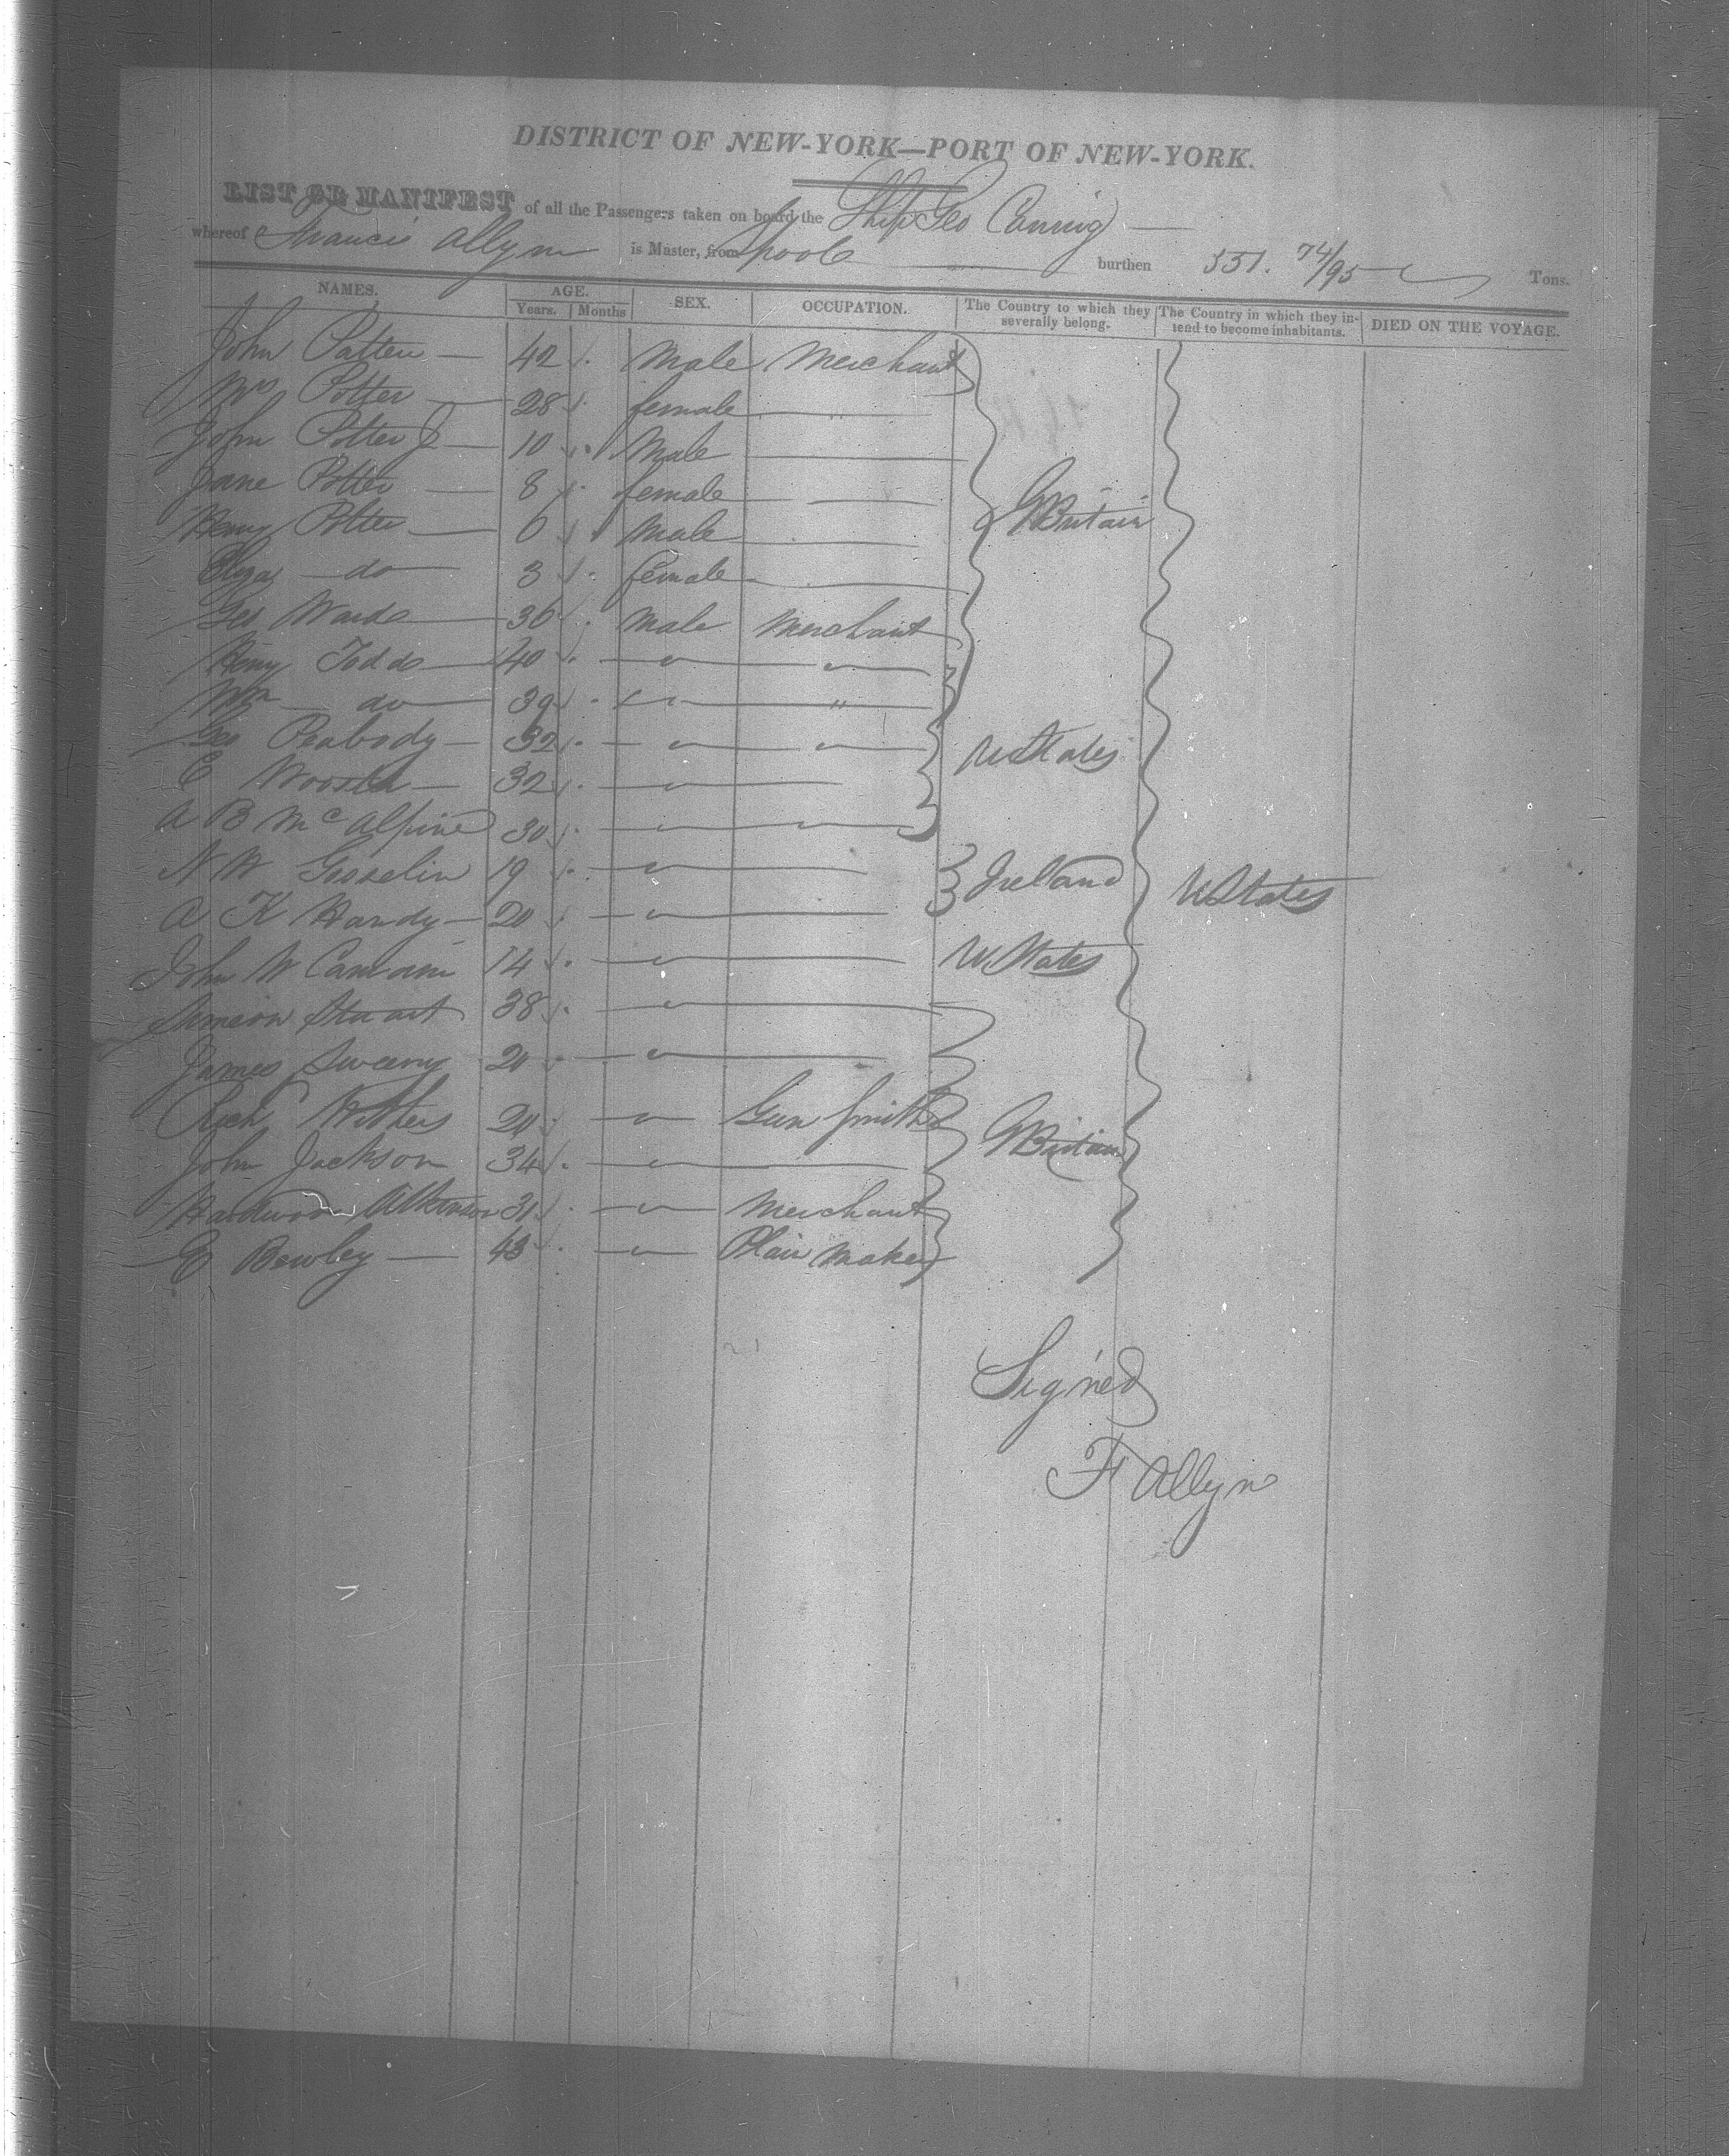 DISTRICT OF NEW-YORK—PORT OF NEW-YORK.
LIST OR MANIFEST of all the Passengers taken on board the Ship Geo Canning
whereof Francis Allyn is Master, from Lpool burthen 551. 74/95 Tons.
NAMES. AGE. SEX. OCCUPATION. The Country to which they severally belong. The Country in which they intend to become inhabitants. DIED ON THE VOYAGE.
Years. Months
John Potter 42 Male Merchant
Mrs Potter 28 female "
John Potter J 10 Male
Jane Potter 8 female
Henry Potter 6 Male G Britain
Eliza do 3 female
Geo Warde 36 Male Merchant
Henry Todd 40 " "
Wm do 39 " "
Geo Peabody 32 " " U States
E 32 "
A B McAlpine 30 " "
N W Gosselin 19 " Ireland U States
A K Handy 20 "
John W 14 " U States
Simeon Stuart 38 "
James Sweeny 20 "
Rich Withers 20 " Gun Smith
John Jackson 34 " G Britain
Atkinson 31 " Merchant
E Bewley 43 " Maker
Signed
F Allyn